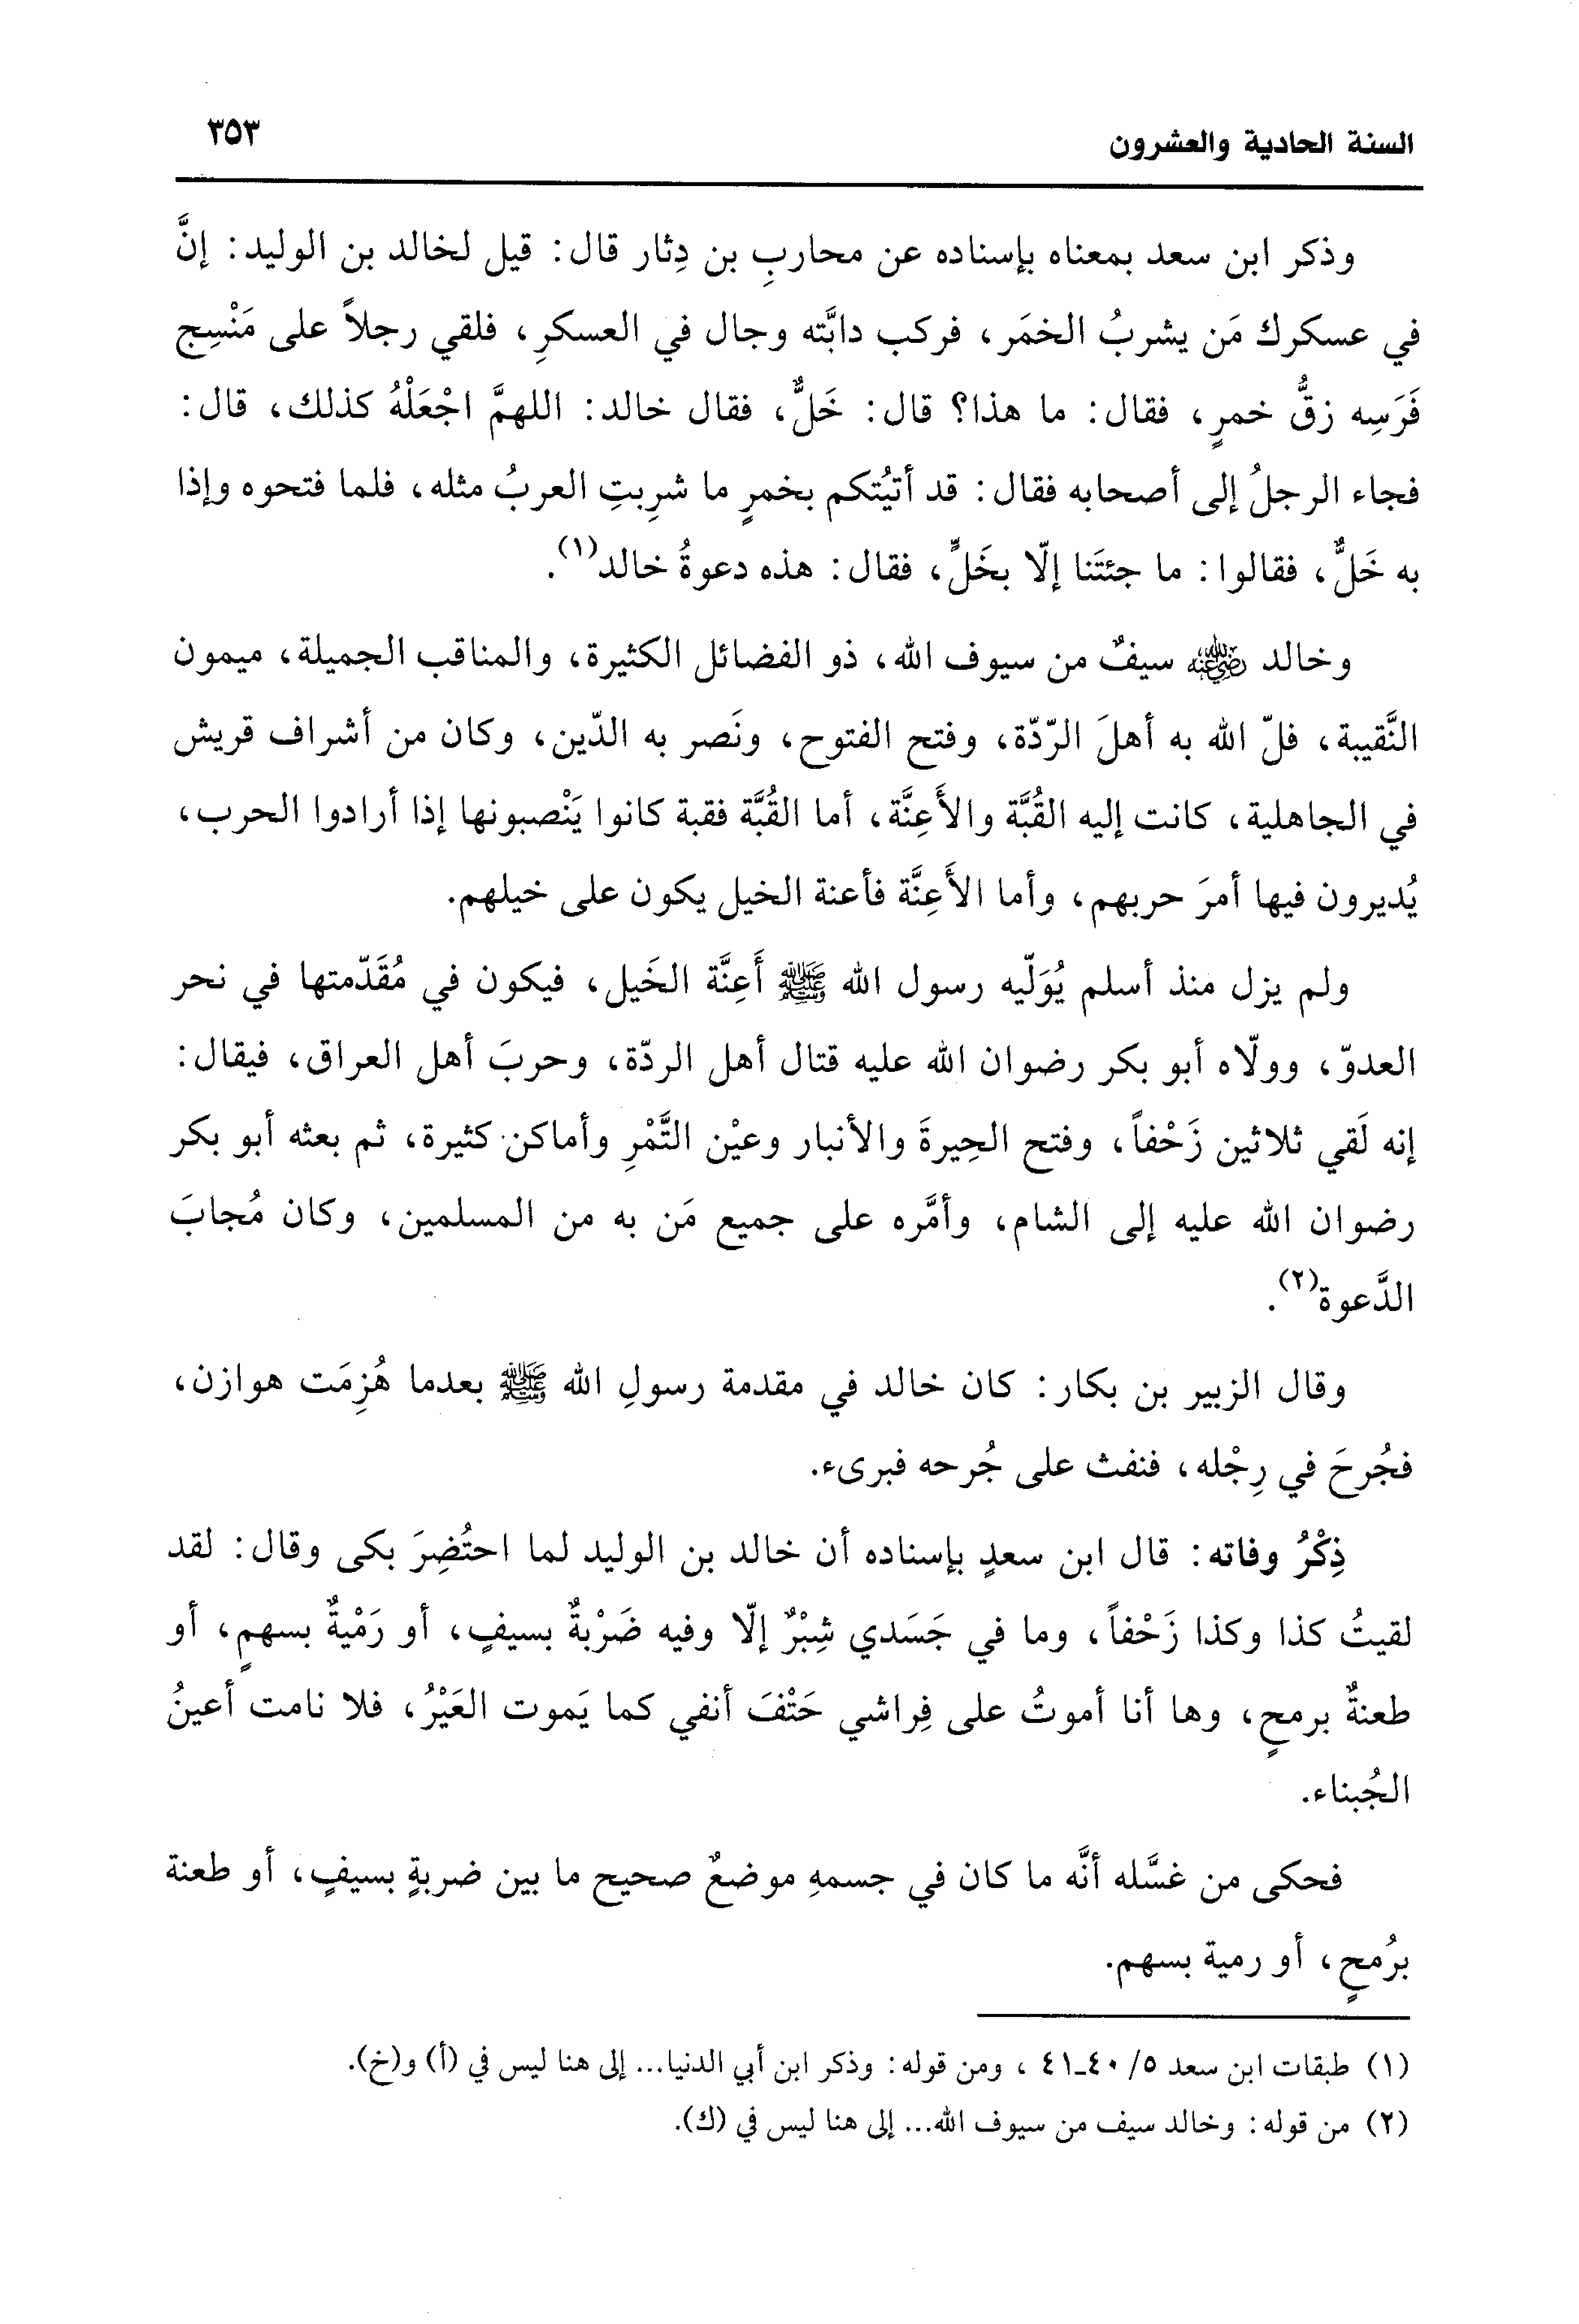 السنة الحادية والعشرون
٣٥٣
وذكر ابن سعد بمعناه بإسناده عن محاربِ بن دِثار قال: قيل لخالد بن الوليد: إنَّ
في عسكرك مَن يشربُ الخمَر، فركب دابَّته وجال في العسكرِ، فلقي رجلاً على مَنْسِج
فَرَسِه زقُّ خمرٍ، فقال: ما هذا؟ قال: خَلٌّ، فقال خالد: اللهمَّ اجْعَلْهُ كذلك، قال:
فجاء الرجلُ إلى أصحابه فقال: قد أتيُتكم بخمرٍ ما شرِبتِ العربُ مثله، فلما فتحوه وإذا
به خَلٌّ، فقالوا: ما جئتَنا إلّا بخَلٍّ، فقال: هذه دعوةُ خالد(١).
وخالد رضي الله عنه سيفٌ من سيوف الله، ذو الفضائل الكثيرة، والمناقب الجميلة، ميمون
النَّقيبة، فلّ الله به أهلَ الرّدّة، وفتح الفتوح، ونَصر به الدّين، وكان من أشراف قريش
في الجاهلية، كانت إليه القُبَّة والأَعِنَّة، أما القُبَّة فقبة كانوا يَنْصبونها إذا أرادوا الحرب،
يُديرون فيها أمرَ حربهم، وأما الأَعِنَّة فأعنة الخيل يكون على خيلهم.
ولم يزل منذ أسلم يُوَلّيه رسول الله ﷺ أَعِنَّة الخَيل، فيكون في مُقَدّمتها في نحر
العدوّ، وولّاه أبو بكر رضوان الله عليه قتال أهل الردّة، وحربَ أهل العراق، فيقال:
إنه لَقي ثلاثين زَحْفاً، وفتح الحِيرةَ والأنبار وعيْن التَّمْرِ وأماكن كثيرة، ثم بعثه أبو بكر
رضوان الله عليه إلى الشام، وأمَّره على جميع مَن به من المسلمين، وكان مُجابَ
الدَّعوة(٢).
وقال الزبير بن بكار: كان خالد في مقدمة رسولِ الله ﷺ بعدما هُزِمَت هوازن،
فجُرحَ في رِجْله، فنفث على جُرحه فبرىء.
ذِكْرُ وفاته: قال ابن سعدٍ بإسناده أن خالد بن الوليد لما احتُضِرَ بكى وقال: لقد
لقيتُ كذا وكذا زَحْفاً، وما في جَسَدي شِبْرٌ إلّا وفيه ضَرْبةٌ بسيفٍ، أو رَمْيةٌ بسهمٍ، أو
طعنةٌ برمحٍ، وها أنا أموتُ على فِراشي حَتْفَ أنفي كما يَموت العَيْرُ، فلا نامت أعينُ
الجُبناء.
فحكى من غسَّله أنَّه ما كان في جسمهِ موضعٌ صحيح ما بين ضربةٍ بسيفٍ، أو طعنة
برُمحٍ، أو رمية بسهم.
(١) طبقات ابن سعد ٥/ ٤٠-٤١ ، ومن قوله: وذكر ابن أبي الدنيا... إلى هنا ليس في (أ) و(خ).
(٢) من قوله: وخالد سيف من سيوف الله... إلى هنا ليس في (ك).